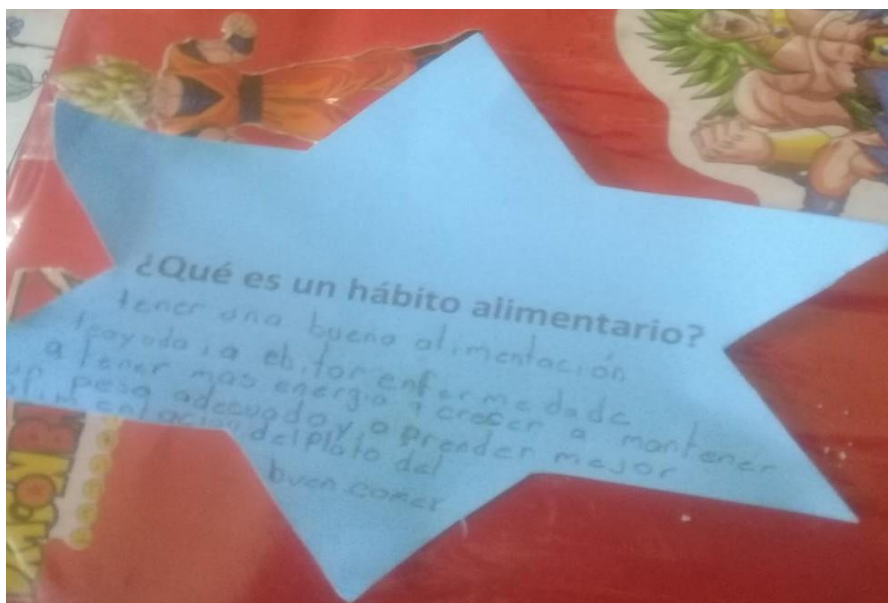 ¿Qué es un hábito alimentario?
tener una buena alimentación
teayuda,a ebitar enfermedade
a tener mas energia, crecer a mantener
un peso adecuado, y aprender mejor
alimentación del Plato del
buen comer